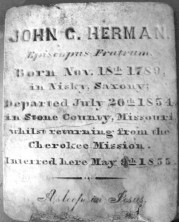 JOHN G. HERMAN.
Episcopus Fratrum.
Born Nov. 18th 1789,
in Nisky, Saxony:
Departed July 20th 1854,
in Stone County, Missouri,
whilst returning from the
Cherokee Mission.
Interred here May 8th 1855.
Asleep in Jesus.